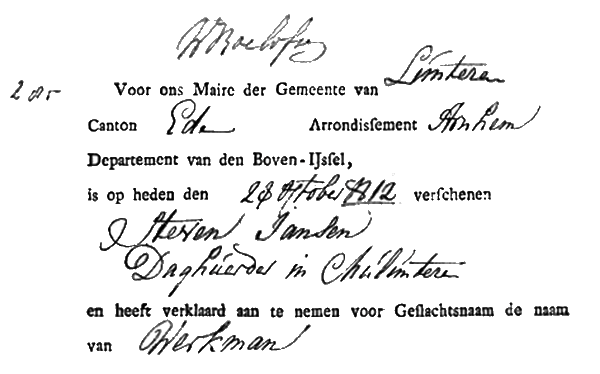 WRoelofsen
285 Voor ons Maire der Gemeente van Lunteren
Canton Ede Arrondisſement Arnhem
Departement van den Boven-IJsſel,
is op heden den 28 October 1812 verſchenen
Steven Jansen
Daghuurder in
en heeft verklaard aan te nemen voor Geſlachtsnaam de naam
van Werkman